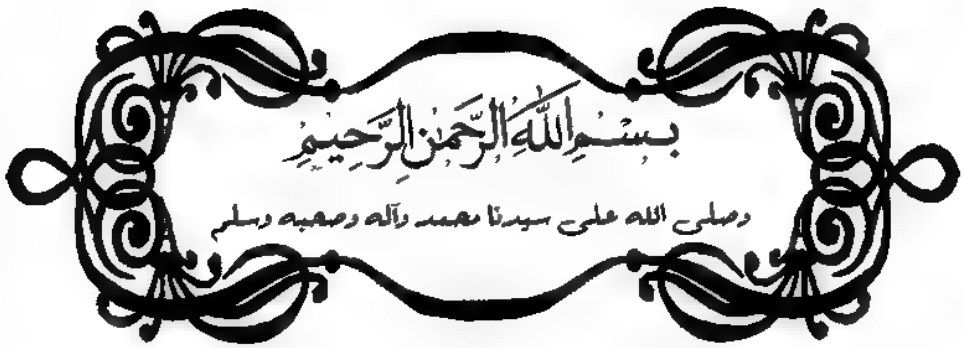 بِسْمِ اللَّهِ الرَّحْمَنِ الرَّحِيمِ
وصلى الله على سيدنا محمد وآله وصحبه وسلم